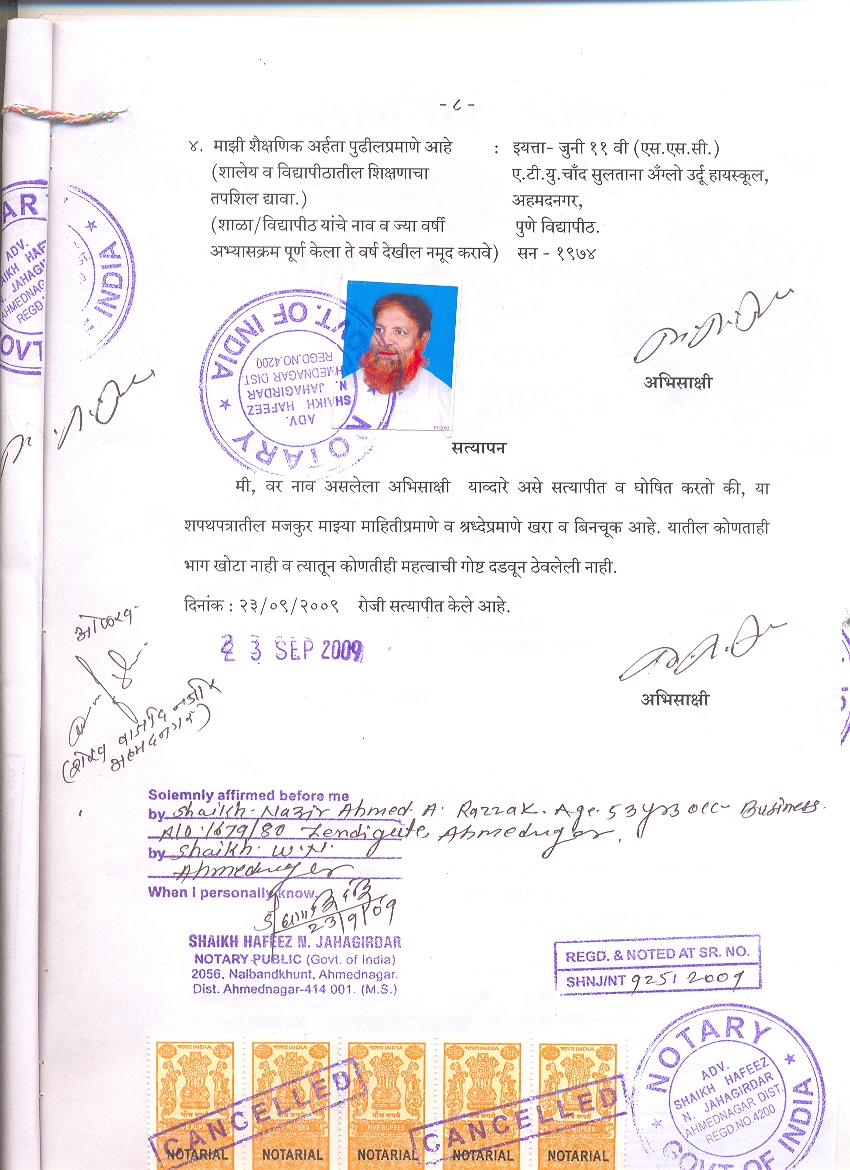 - ८ -
४. माझी शैक्षणिक अर्हता पुढीलप्रमाणे आहे : इयत्ता- जुनी ११ वी (एस.एस.सी.)
(शालेय व विद्यापीठातील शिक्षणाचा ए.टी.यु.चाँद सुलताना अँग्लो उर्दू हायस्कूल,
तपशिल द्यावा.) अहमदनगर,
(शाळा/विद्यापीठ यांचे नाव व ज्या वर्षी पुणे विद्यापीठ.
अभ्यासक्रम पूर्ण केला ते वर्ष देखील नमूद करावे) सन - १९७४
NOTARY GOVT. OF INDIA
ADV.
SHAIKH HAFEEZ
N. JAHAGIRDAR
AHMEDNAGAR DIST.
REGD.NO.4200
अभिसाक्षी
सत्यापन
मी, वर नाव असलेला अभिसाक्षी याव्दारे असे सत्यापीत व घोषित करतो की, या
शपथपत्रातील मजकुर माझ्या माहितीप्रमाणे व श्रध्देप्रमाणे खरा व बिनचूक आहे. यातील कोणताही
भाग खोटा नाही व त्यातून कोणतीही महत्वाची गोष्ट दडवून ठेवलेली नाही.
दिनांक : २३/०९/२००९ रोजी सत्यापीत केले आहे.
23 SEP 2009
अभिसाक्षी
Solemnly affirmed before me
by Shaikh Nazir Ahmed A. Razzak. Age 53 yrs occ- Business.
R/o 1679/80 Zendigate, Ahmednager.
by Shaikh W.N.
Ahmednager
When I personally know
23/9/09
SHAIKH HAFEEZ N. JAHAGIRDAR
NOTARY PUBLIC (Govt. of India)
2056, Nalbandkhunt, Ahmednagar.
Dist. Ahmednagar-414 001. (M.S.)
REGD. & NOTED AT SR. NO.
SHNJ/NT 925/2009
भारत INDIA भारत INDIA भारत INDIA भारत INDIA भारत INDIA
पाँच रुपये पाँच रुपये पाँच रुपये पाँच रुपये पाँच रुपये
FIVE RUPEES FIVE RUPEES FIVE RUPEES FIVE RUPEES FIVE RUPEES
CANCELLED CANCELLED
NOTARIAL NOTARIAL NOTARIAL NOTARIAL NOTARIAL
NOTARY GOVT OF INDIA
ADV.
SHAIKH HAFEEZ
N. JAHAGIRDAR
AHMEDNAGAR DIST.
REGD.NO.4200